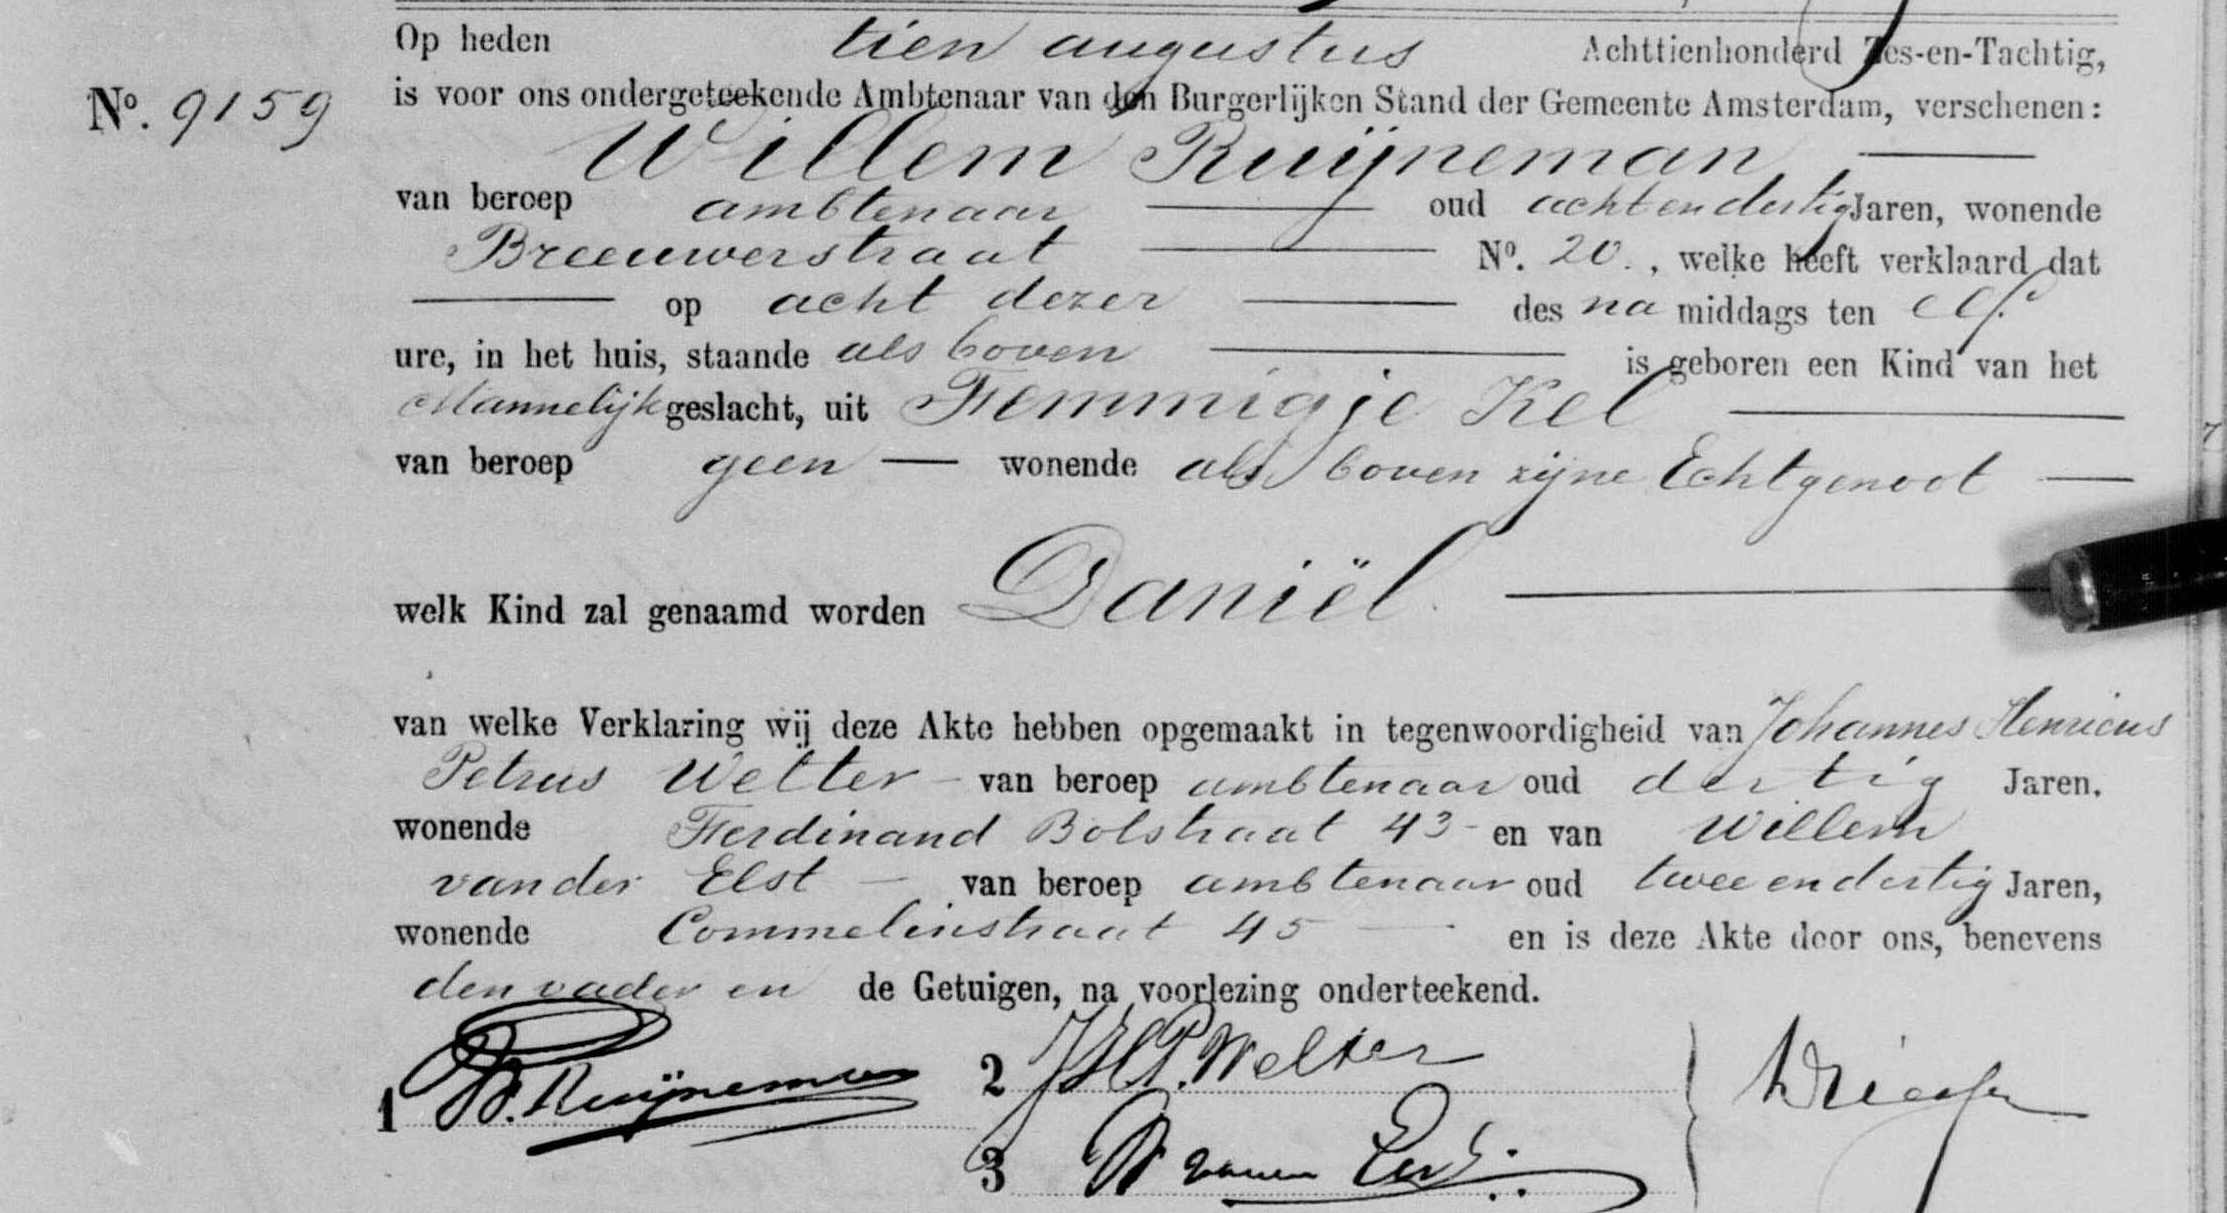 Op heden tien augustus Achttienhonderd Zes-en-Tachtig,
No. 9159 is voor ons ondergeteekende Ambtenaar van den Burgerlijken Stand der Gemeente Amsterdam, verschenen:
Willem Ruijneman
van beroep ambtenaar oud achtendertig Jaren, wonende
Breeuwerstraat No. 20., welke heeft verklaard dat
op acht dezer des na middags ten elf
ure, in het huis, staande als boven is geboren een Kind van het
Mannelijk geslacht, uit Femmigje Kel
van beroep geen — wonende als boven zijne Echtgenoot
welk Kind zal genaamd worden Daniël.
van welke Verklaring wij deze Akte hebben opgemaakt in tegenwoordigheid van Johannes Henricus
Petrus Welter van beroep ambtenaar oud dertig Jaren.
wonende Ferdinand Bolstraat 43 en van Willem
van der Elst van beroep ambtenaar oud twee en dertig Jaren,
wonende Commelinstraat 45 en is deze Akte door ons, benevens
den vader en de Getuigen, na voorlezing onderteekend.
1 W. Ruijneman 2 J.H.P. Welter
3 W van der Elst